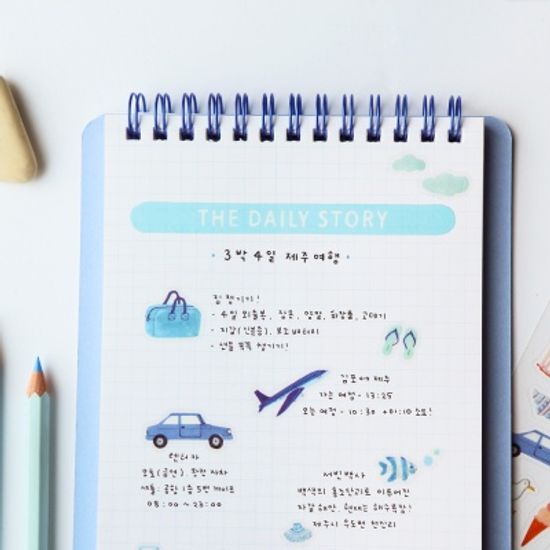 THE DAILY STORY
· 3박 4일 제주여행 ·
짐 챙기기!
- 4일 외출복, 잠옷, 양말, 화장품, 고데기
- 지갑(신분증), 보조배터리
- 샌들 꼭꼭 챙기기!
김포에 제주
가는 여정 - 13:25
오는 여정 - 10:30 +1:10 소요!
렌터카
모토(공연), 황련 차차
셔틀: 공항 1층 5번 게이트
08:00 ~ 23:00
서빈백사
백색의 홍조단괴로 이루어진
자갈 해안, 현재는 해수욕장!
제주시 우도면 연평리